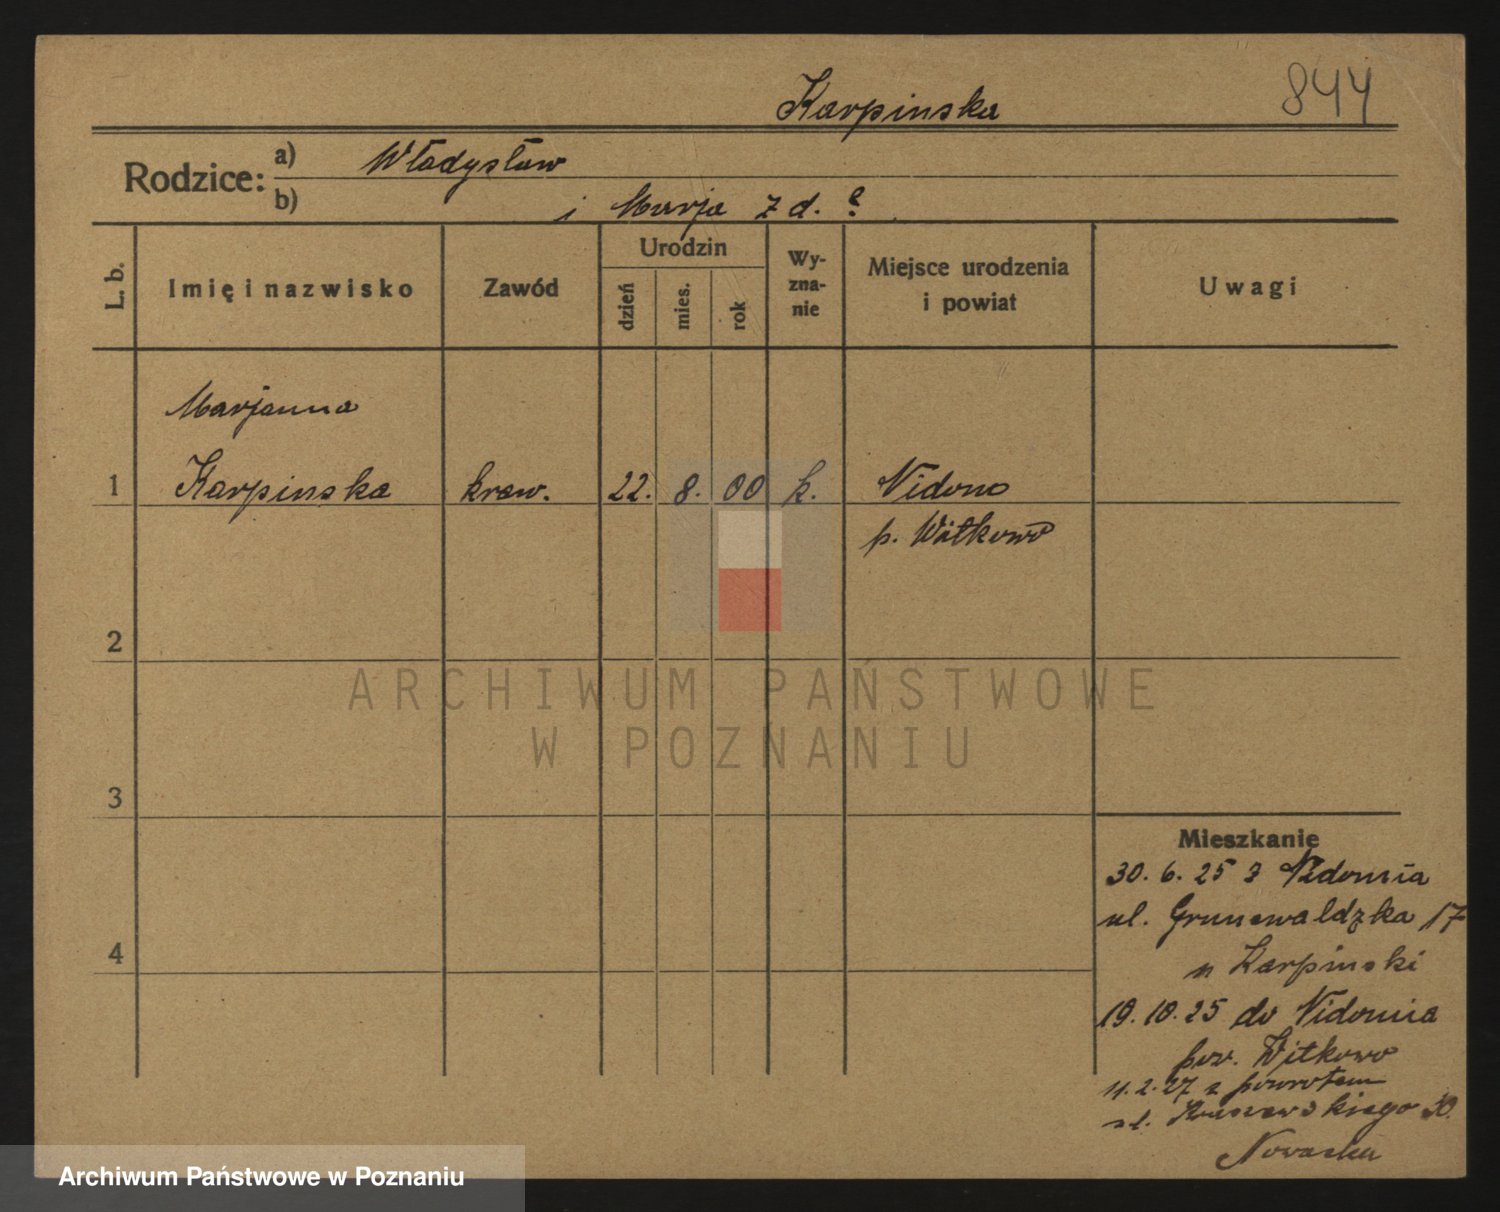 Karpinska
844
Rodzice:
a) Władysław
b) i Marja z d. ?
L. b.
Imię i nazwisko
Zawód
Urodzin
dzień
mies.
rok
Wy-
zna-
nie
Miejsce urodzenia
i powiat
Uwagi
Marjanna
1 Karpinska kraw. 22. 8. 00 k. Nidomo
p. Witkowo
2
3
4
Mieszkanie
30. 6. 25 z Nidomia
ul. Grunewaldzka 17
u Karpinski
19. 10. 25 do Nidomia
pow. Witkowo
11. 2. 27 z powrotem
ul. Kraszewskiego
ARCHIWUM PAŃSTWOWE
W POZNANIU
Archiwum Państwowe w Poznaniu